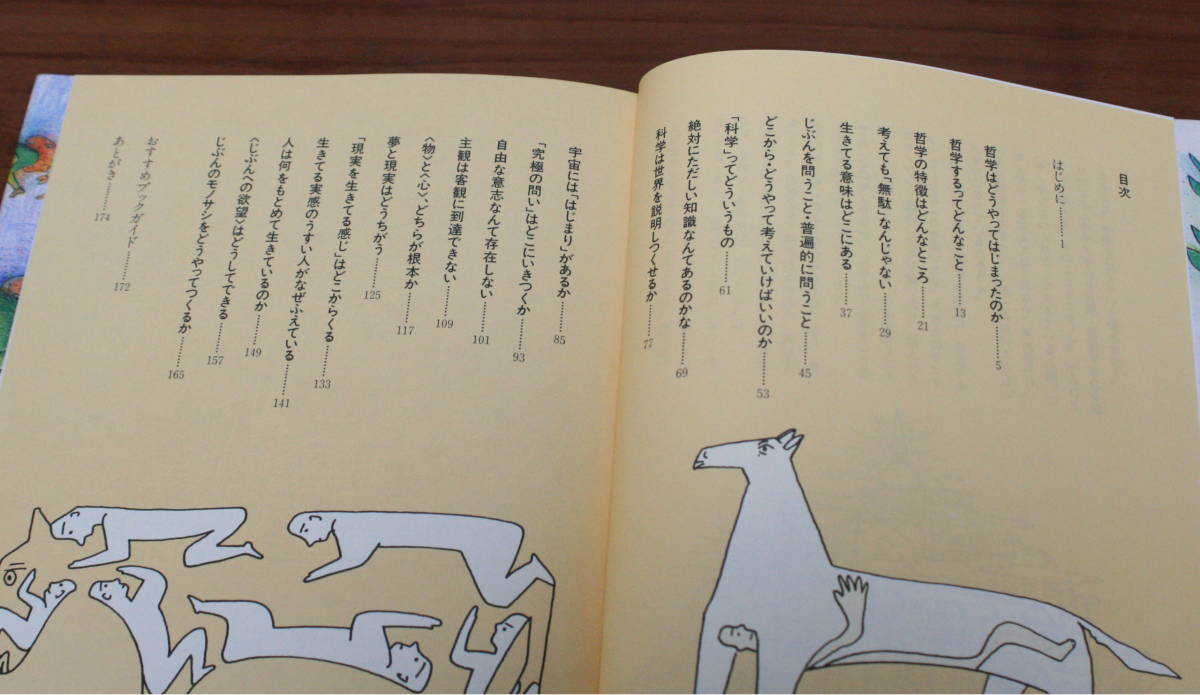 目次
はじめに………1
哲学はどうやってはじまったのか………5
哲学するってどんなこと………13
哲学の特徴はどんなところ………21
考えても「無駄」なんじゃない………29
生きてる意味はどこにある………37
じぶんを問うこと・普遍的に問うこと………45
どこから・どうやって考えていけばいいのか………53
「科学」ってどういうもの………61
絶対にただしい知識なんてあるのかな………69
科学は世界を説明しつくせるか………77
宇宙には「はじまり」があるか………85
「究極の問い」はどこにいきつくか………93
自由な意志なんて存在しない………101
主観は客観に到達できない………109
〈物〉と〈心〉、どちらが根本か………117
夢と現実はどうちがう………125
「現実を生きてる感じ」はどこからくる………133
生きてる実感のうすい人がなぜふえている………141
人は何をもとめて生きているのか………149
〈じぶんへの欲望〉はどうしてできる………157
じぶんのモノサシをどうやってつくるか………165
おすすめブックガイド………172
あとがき………174